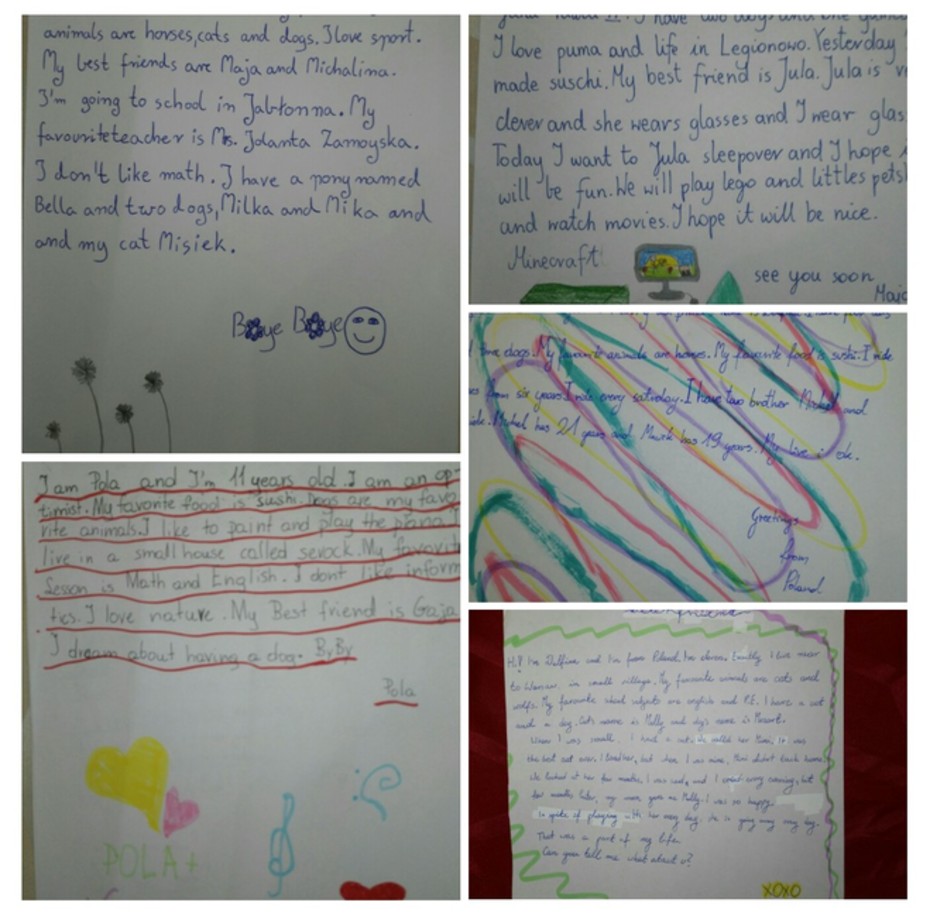 animals are horses,cats and dogs.I love sport.
My best friends are Maja and Michalina.
I'm going to school in Jabłonna. My
favouriteteacher is Ms. Jolanta Zamoyska.
I don't like math. I have a pony named
Bella and two dogs, Milka and Mika and
and my cat Misiek.
Bye Bye
I have two dogs and one
I love puma and life in Legionowo. Yesterday
made suschi. My best friend is Jula. Jula is
clever and she wears glasses and I wear glas
Today I want to Jula sleepover and I hope
will be fun. We will play lego and littles pets
and watch movies. I hope it will be nice.
Minecraft
see you soon
Maja
dogs. My favourite animals are horses. My favourite food is sushi. I ride
from six years. I ride every saturday. I have two brother Michel and
Michel has 21 years and Macik has 19 years. My live is ok.
Greetings
from
Poland
I am Pola and I'm 11 years old. I am an op
timist. My favorite food is sushi. Dogs are my favo
rite animals. I like to paint and play the piano
live in a small house called serock. My favorit
lesson is Math and English. I dont like inform
tics. I love nature. My Best friend is Gaja
I dream about having a dog. ByBy
Pola
POLA+
Hi! I'm Delfina and I'm from Poland. I'm eleven. I live near
to Warsaw, in small village. My favourite animals are cats and
wolfs. My favourite school subjects are english and P.E. I have a cat
and a dog. Cat's name is Molly and dog's name is Mozart.
When I was small, I had a cat. We called her Mimi. It was
the best cat ever. I loved her, but when I was nine, Mimi didn't back home.
We looked at her few months. I was sad, and I went every evening, but
few months later, my mom gave me Molly. I was so happy.
In spite of playing with her every day, she is going away every day.
That was a part of my life.
Can you tell me what about u?
XOXO